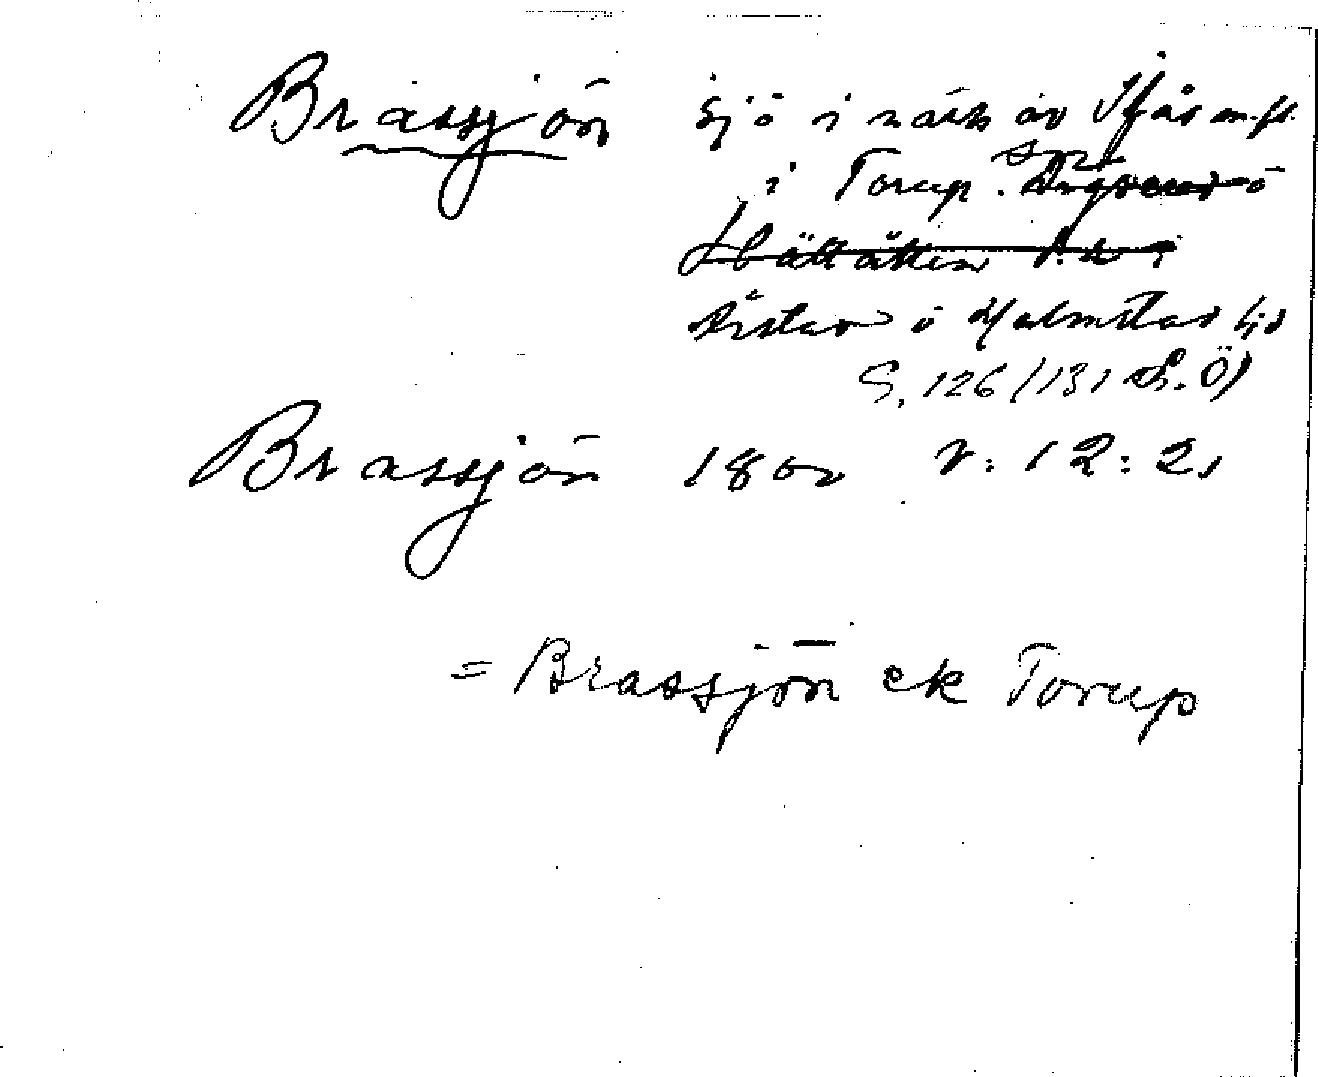 Brassjön sjö i närh av Ifås m.fl.
i Torup. sn
Årstad o Halmstad hd
S. 126/131 S.Ö)
Brassjön 1802 v: 12: 21
= Brassjön ek Torup